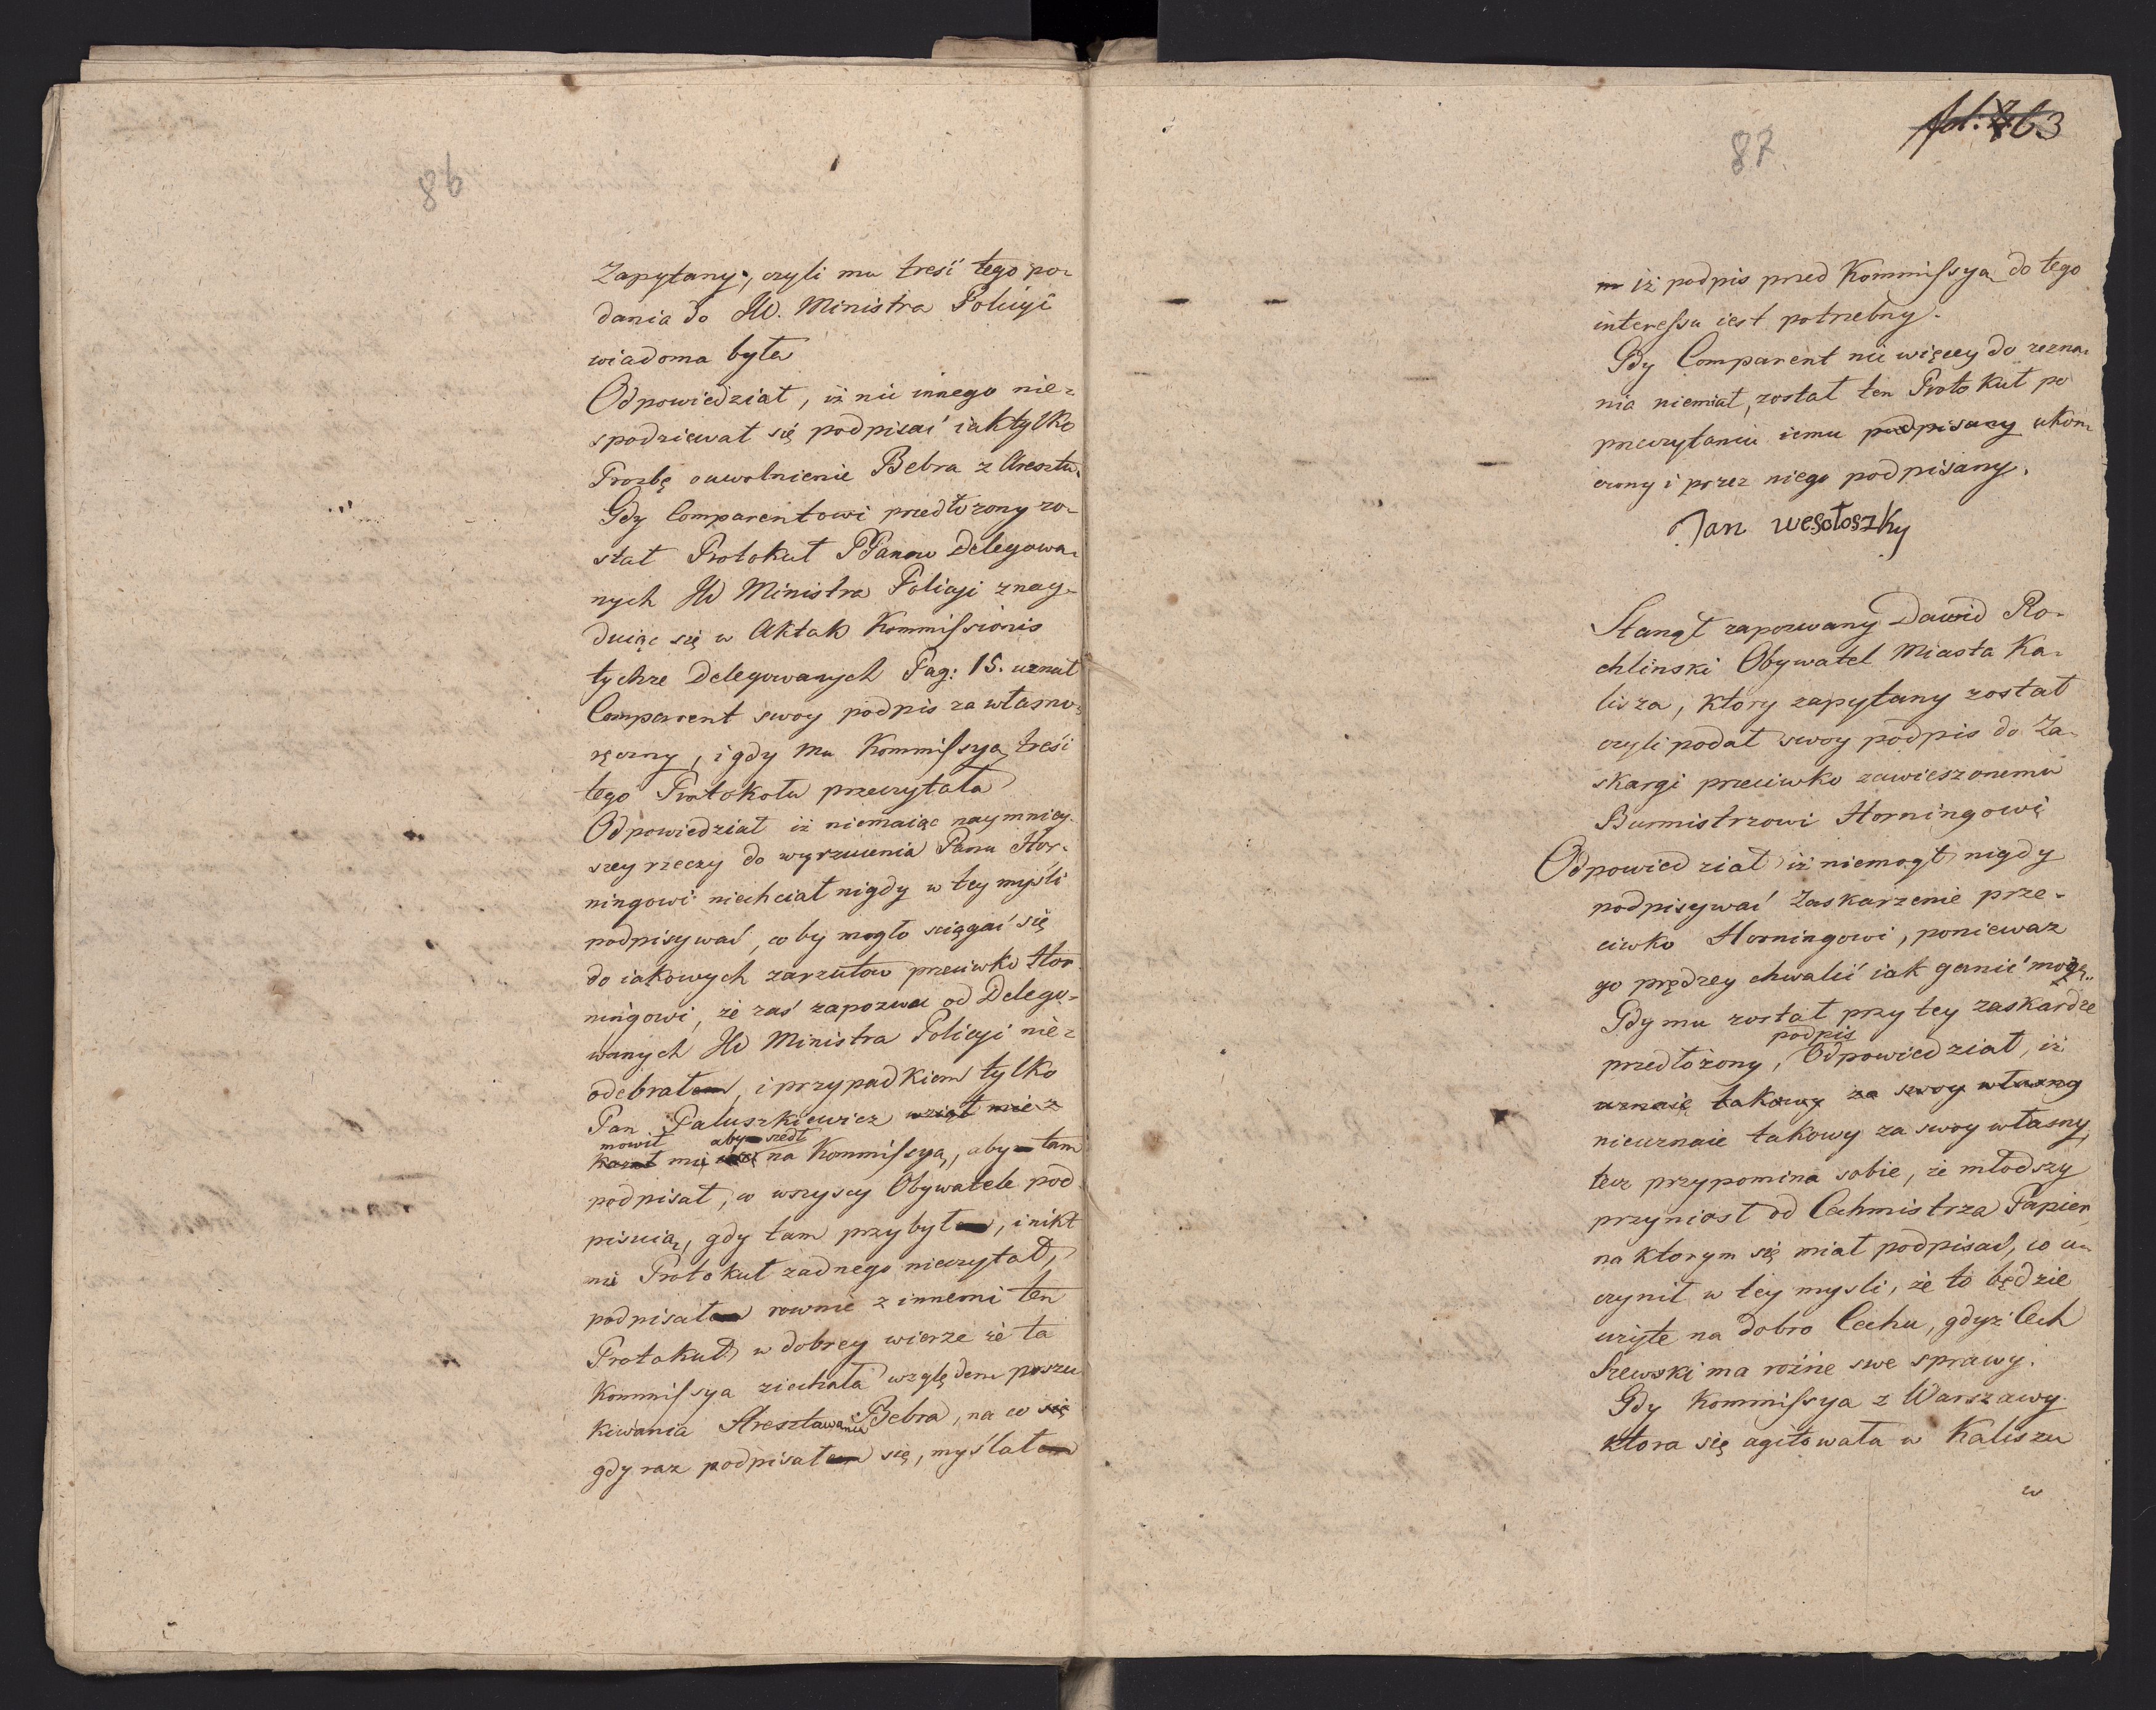 86
Zapytany, czyli mu treść tego po-
dania do JW. Ministra Policyi
wiadoma była
Odpowiedział, iż nic innego nie-
spodziewał się podpisać iak tylko
Prozbę o uwolnienie Bebra z Aresztu.
Gdy Comparentowi przedłożony zo-
stał Protokuł PPanow Delegowa-
nych JW Ministra Policyi znay-
duiąc się w Aktak Kommissionis
tychże Delegowanych Pag: 15. uznał
Comparent swoy podpis za własno-
ręczny, i gdy mu Kommissya treść
tego Protokołu przeczytała
Odpowiedział iż niemaiąc naymniey-
szey rzeczy do wyrzucenia Panu Hor-
ningowi niechciał nigdy w tey myśli
podpisywać, co by mogło sciągać się
do iakowych zarzutow przeciwko Hor
ningowi, że zaś zapozwu od Delego-
wanych JW Ministra Policyi nie-
odebrałem, i przypadkiem tylko
Pan Paluszkiewicz wziął mie z
mowił aby szedł
kazał mi na Kommissyą, aby tam
podpisał, co wszyscy Obywatele pod
pisuią, gdy tam przybyłem, i nikt
mi Protokuł żadnego nieczytał,
podpisałem rownie z innemi ten
Protokuł w dobrey wierze że ta
Kommissya ziechała względem poszu
kiwania Aresztowania Bebra, na co się
gdy raz podpisałem się, myślałem
fol: 763
87
m iż podpis przed Kommissyą do tego
interessu iest potrzebny.
Gdy Comparent nic więcey do zezna-
nia niemiał, został ten Protokuł po
przeczytaniu iemu podpisany ukon-
czony i przez niego podpisany.
Jan wesołoszky
Stanął zapozwany Dawid Ro-
chlinski Obywatel Miasta Ka-
lisza, ktory zapytany został
czyli podał swoy podpis do Za-
skargi przeciwko zawieszonemu
Burmistrzowi Horningowi
Odpowiedział iż niemogł nigdy
podpisywać Zaskarzenie prze-
ciwko Horningowi, poniewaz
go prędzey chwalić iak ganić może..
Gdy mu został przy tey zaskardze
podpis
przedłożony, Odpowiedział, iż
uznaie takowy za swoy własny
nieuznaie takowy za swoy własny,
lecz przypomina sobie, że młodszy
przyniosł od Cechmistrza Papier
na ktorym się miał podpisać, co u-
czynił w tey mysli, że to będzie
użyte na dobro Cechu, gdyż Cech
Szewski ma rożne swe sprawy.
Gdy Kommissya z Warszawy
ktora się agitowała w Kaliszu
w